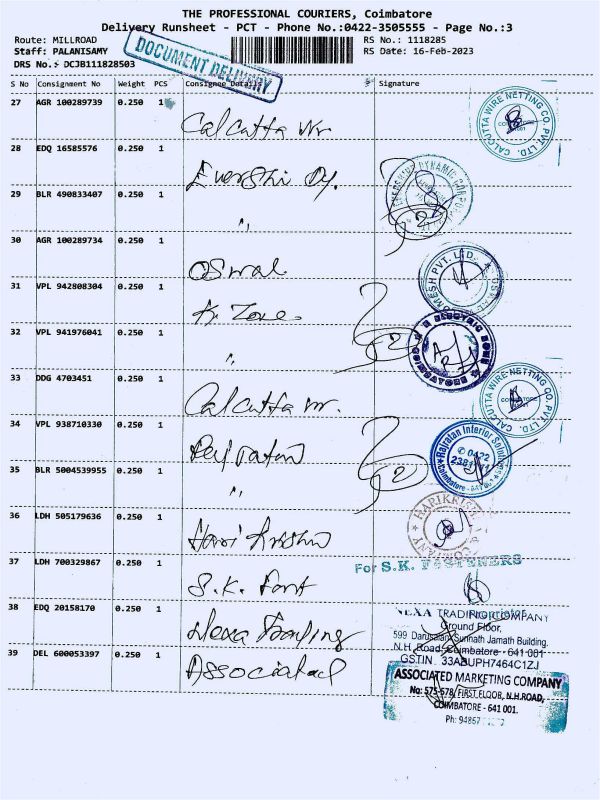 THE PROFESSIONAL COURIERS, Coimbatore
Delivery Runsheet - PCT - Phone No.:0422-3505555 - Page No.:3
Route: MILLROAD
RS No.: 1118285
Staff: PALANISAMY
RS Date: 16-Feb-2023
DRS No.: DCJB111828503
DOCUMENT DELIVERY
S No Consignment No Weight PCS Consignee Details Signature
27 AGR 100289739 0.250 1 Calcutta Wr
CALCUTTA WIRE NETTING CO. PVT. LTD.
28 EDQ 16585576 0.250 1
29 BLR 490833407 0.250 1 "
2
30 AGR 100289734 0.250 1 Oswal
31 VPL 942808304 0.250 1
32 VPL 941976041 0.250 1 "
2
33 DDG 4703451 0.250 1 Calcutta Wr.
CALCUTTA WIRE NETTING CO. PVT. LTD.
34 VPL 938710330 0.250 1
Rajratan Interior Solution
0422
Coimbatore
35 BLR 5004539955 0.250 1 "
2
36 LDH 505179636 0.250 1 Hari Krishna
37 LDH 700329867 0.250 1 S.K. Fast
For S.K. FASTENERS
38 EDQ 20158170 0.250 1 Nexa Trading
NEXA TRADING COMPANY
Ground Floor,
599 Darussalam Sunnath Jamath Building,
N.H. Road, Coimbatore - 641 001
GSTIN. 33ABUPH7464C1ZJ
39 DEL 600053397 0.250 1 Associated
ASSOCIATED MARKETING COMPANY
No: 575-578, FIRST FLOOR, N.H.ROAD,
COIMBATORE - 641 001.
Ph: 94867